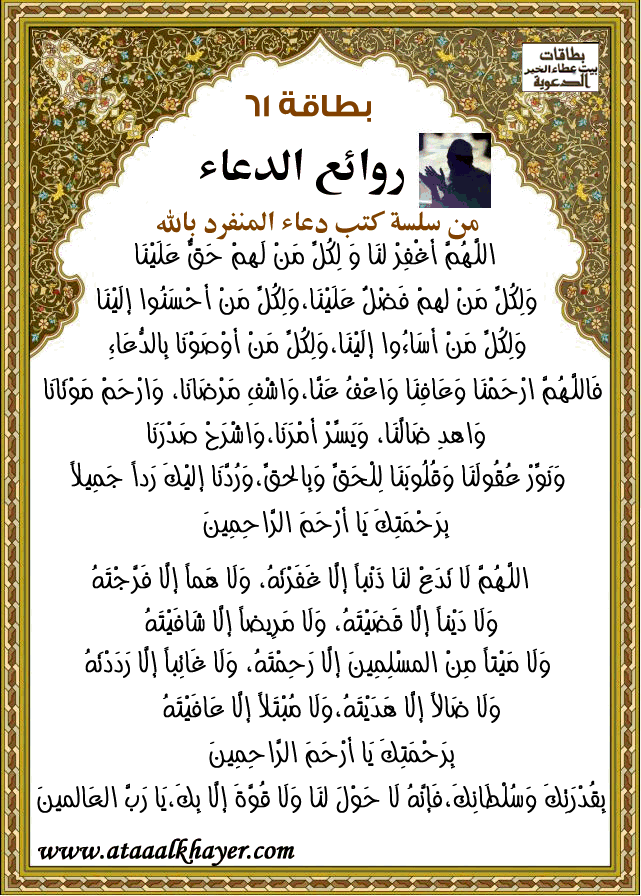 بطاقات
بيت عطاء الخير
الدعوية
بطاقة ٦١
روائع الدعاء
من سلسة كتب دعاء المنفرد بالله
اللَّهُمَّ أغْفِرْ لنَا وَ لِكُلِّ مَنْ لَهمْ حَقٌّ عَلَيْنَا
وَلِكُلِّ مَنْ لهمْ فَضْلٌ عَلَيْنَا،وَلِكُلِّ مَنْ أحْسَنُوا إلَيْنَا
وَلِكُلِّ مَنْ أسَاءُوا إلَيْنَا،وَلِكُلِّ مَنْ أوْصَوْنَا بِالدُّعَاءِ
فَاللَّهُمَّ ارْحَمْنَا وَعَافِنَا وَاعْفُ عَنَّا،وَاشْفِ مَرْضَانَا، وَارْحَمْ مَوْتَانَا
وَاهدِ ضَالَّنَا، وَيَسِّرْ أمْرَنَا،وَاشْرَحْ صَدْرَنَا
وَنَوِّرْ عُقُولَنَا وَقُلُوبَنَا لِلْحَقِّ وَبِالحقِّ،وَرُدَّنَا إليْكَ رَداً جَمِيلاً
بِرَحْمَتِكَ يَا أرْحَمَ الرَّاحِمِينَ
اللَّهُمَّ لَا تَدَعْ لنَا ذَنْباً إلَّا غَفَرْتَهُ، وَلَا هَماً إلَّا فَرَّجْتَهُ
وَلَا دَيْناً إلَّا قَضَيْتَهُ، وَلَا مَرِيضاً إلَّا شَافَيْتَهُ
وَلَا مَيْتاً مِنْ المسْلِمِينَ إلَّا رَحِمْتَهُ، وَلَا غَائِباً إلَّا رَدَدْتَهُ
وَلَا ضَالاً إلَّا هَدَيْتَهُ،وَلَا مُبْتَلاً إلَّا عَافَيْتَهُ
بِرَحْمَتِكَ يَا أرْحَمَ الرَّاحِمِينَ
بِقُدْرَتِكَ وَسُلْطَانِكَ،فَإنَّهُ لَا حَوْلَ لنَا وَلَا قُوَّةَ إلَّا بِكَ،يَا رَبَّ العَالمينَ
www.ataaalkhayer.com